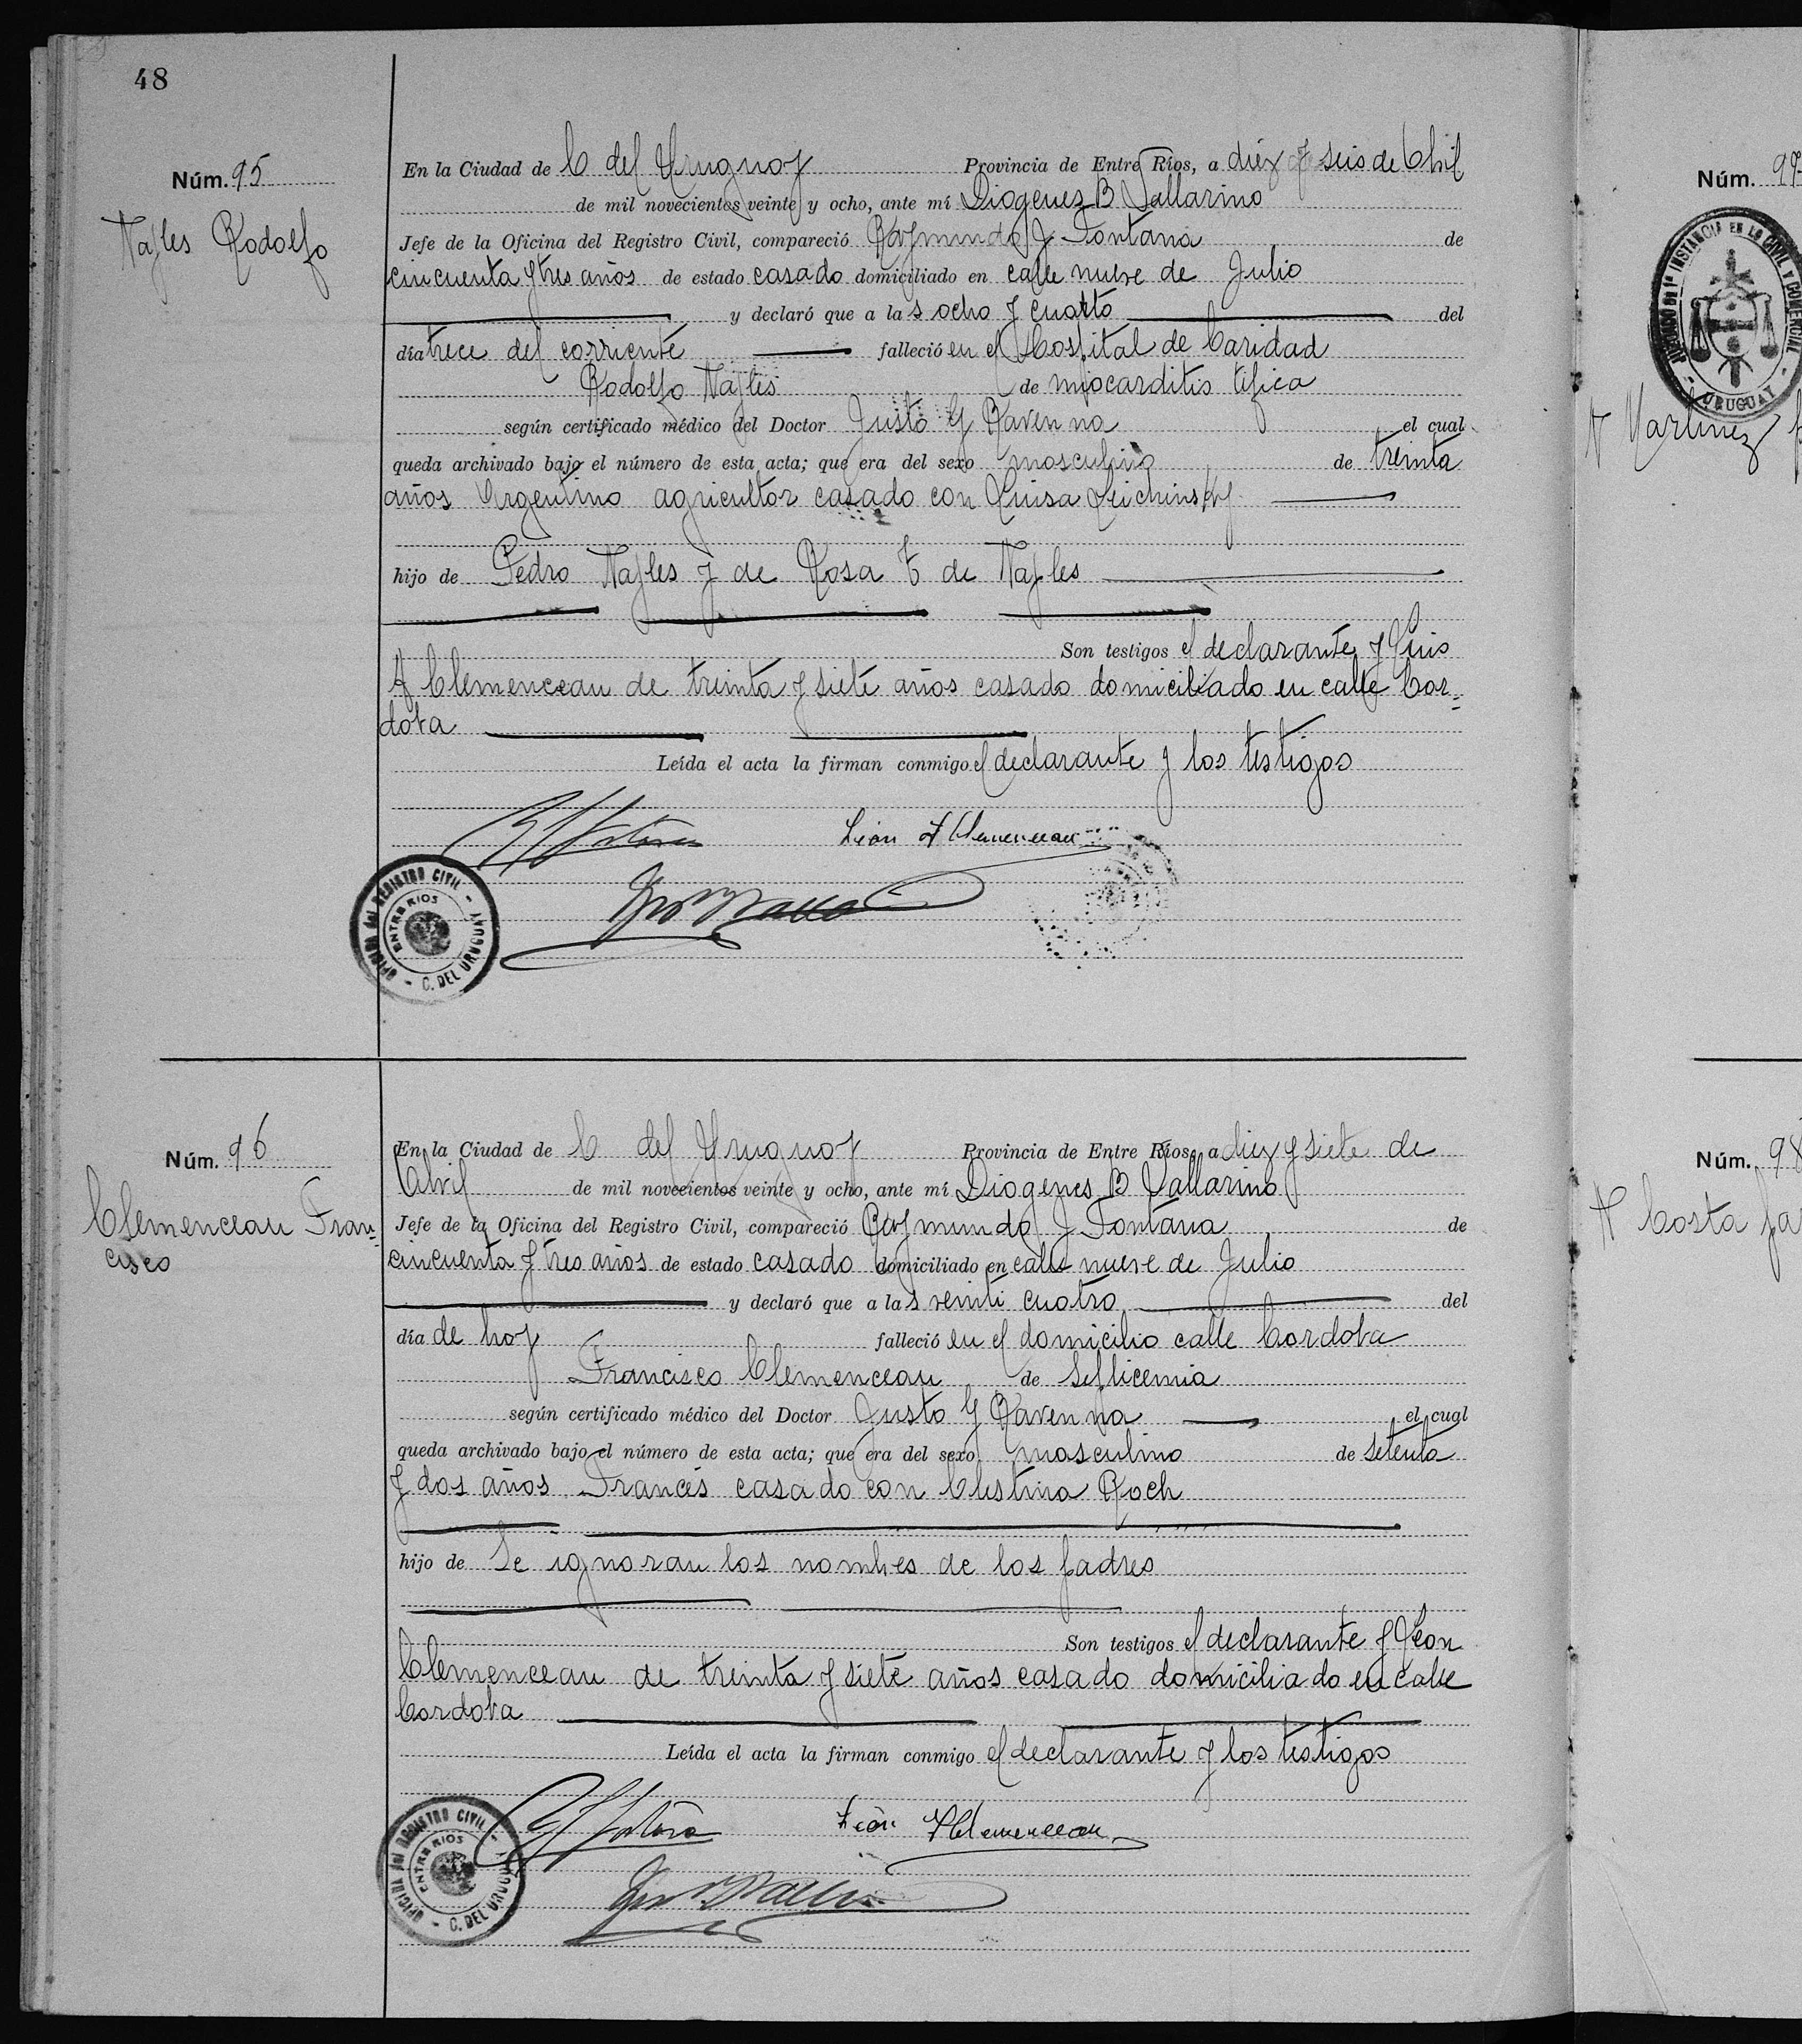 48
Núm. 95
Najles Rodolfo
En la Ciudad de C del Uruguay Provincia de Entre Ríos, a diez y seis de Abril
de mil novecientos veinte y ocho, ante mí Diogenes B Vallarino
Jefe de la Oficina del Registro Civil, compareció Raymundo J Fontana de
cincuenta y tres años de estado casado domiciliado en calle nueve de Julio
y declaró que a las ocho y cuarto del
día trece del corriente falleció en el Hospital de Caridad
Rodolfo Najles de miocarditis tifica
según certificado médico del Doctor Justo G Ravenna el cual
queda archivado bajo el número de esta acta; que era del sexo masculino de treinta
años Argentino agricultor casado con Luisa Leichinsky
hijo de Pedro Najles y de Rosa T de Najles
Son testigos el declarante y Luis
A Clemenceau de treinta y siete años casado domiciliado en calle Cor=
doba
Leída el acta la firman conmigo el declarante y los testigos
León A Clemenceau
OFICINA del REGISTRO CIVIL
ENTRE RIOS
C. DEL URUGUAY
Núm. 96
Clemenceau Fran=
cisco
En la Ciudad de C del Uruguay Provincia de Entre Ríos, a diez y siete de
Abril de mil novecientos veinte y ocho, ante mí Diogenes B Vallarino
Jefe de la Oficina del Registro Civil, compareció Raymundo J Fontana de
cincuenta y tres años de estado casado domiciliado en calle nueve de Julio
y declaró que a las veinti cuatro del
día de hoy falleció en el domicilio calle Cordoba
Francisco Clemenceau de Septicemia
según certificado médico del Doctor Justo G Ravenna el cual
queda archivado bajo el número de esta acta; que era del sexo masculino de setenta
y dos años Francés casado con Clestina Roch
hijo de Se ignoran los nombres de los padres
Son testigos el declarante y León
Clemenceau de treinta y siete años casado domiciliado en calle
Cordoba
Leída el acta la firman conmigo el declarante y los testigos
León A Clemenceau
OFICINA del REGISTRO CIVIL
ENTRE RIOS
C. DEL URUGUAY
Núm. 97
JUZGADO DE 1ª INSTANCIA EN LO CIVIL Y COMERCIAL
URUGUAY
Martinez
Núm. 98
Costa